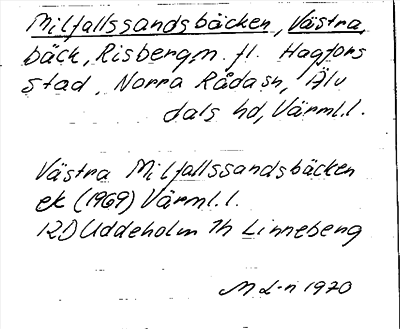 Milfallssandsbäcken, Västra,
bäck, Risbergm. fl. Hagfors
stad, Norra Råda sn, Älv
dals hd, Värml.l.
Västra Milfallssandsbäcken
ek (1969) Värml.l.
12D Uddeholm 7h Linneberg
M L-n 1970